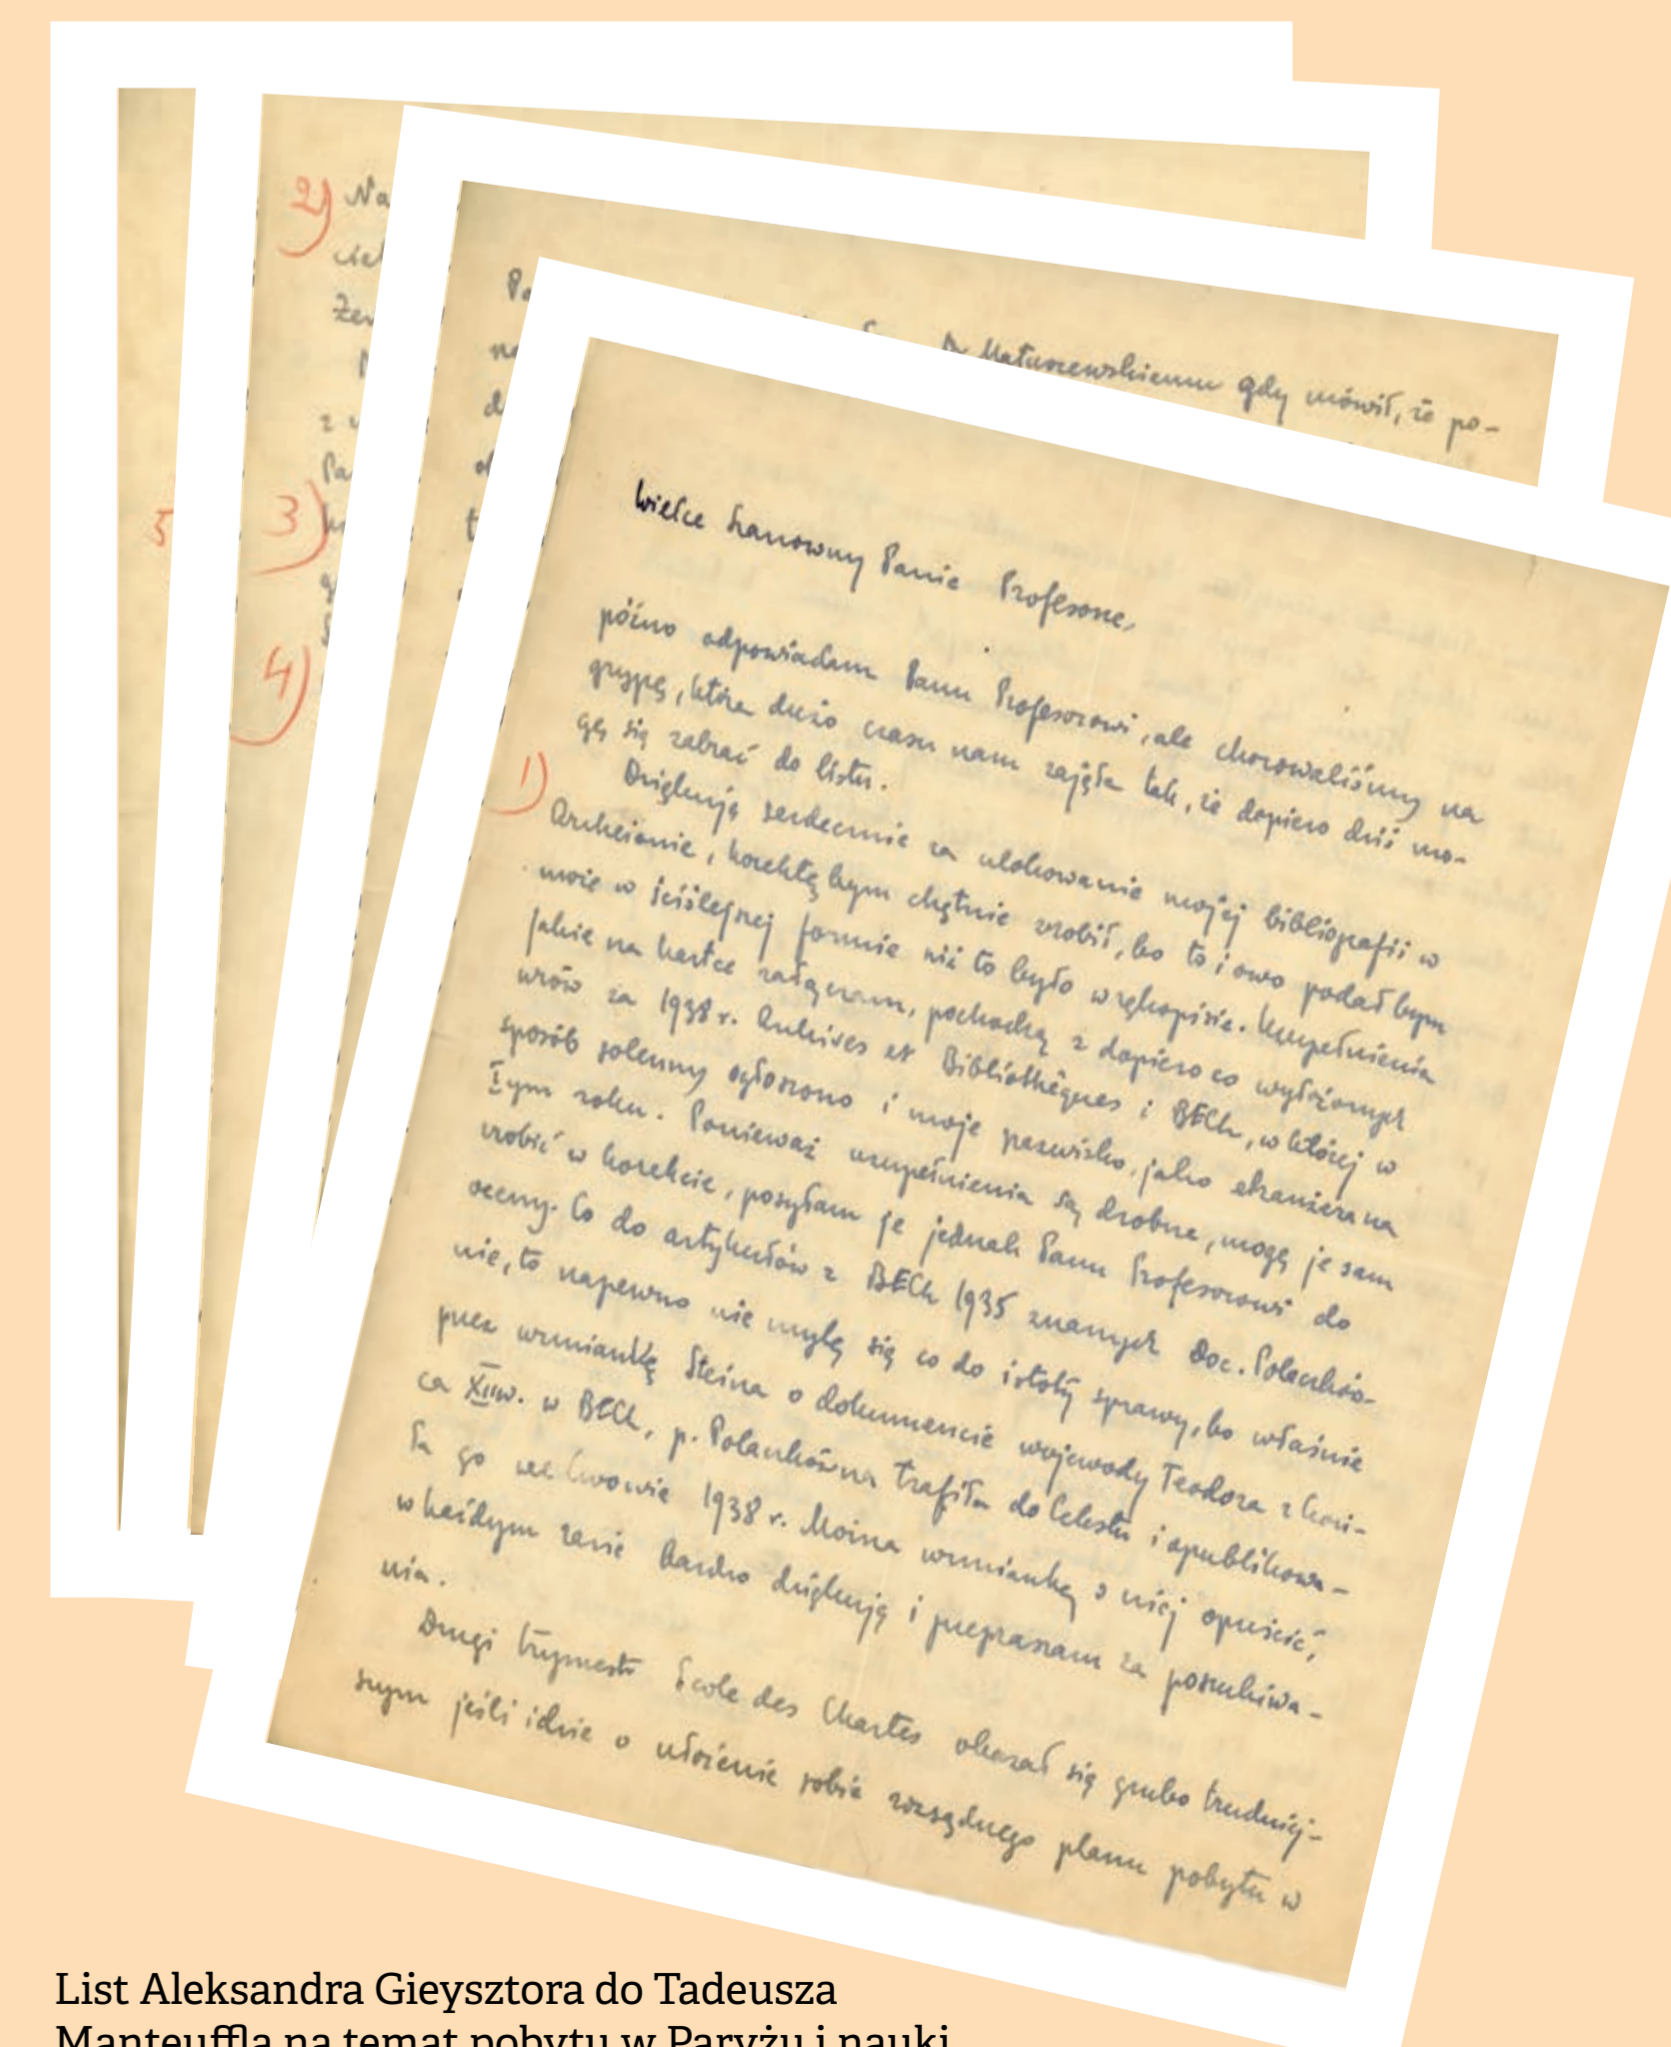 2) Na
ciel
Żen
z u
Pa
3)
4)
5
Po
na
d
ob
t
Dr Matuszewskiemu gdy mówił, że po-
Wielce Szanowny Panie Profesorze,
późno odpowiadam Panu Profesorowi, ale chorowaliśmy na
grypę, która dużo czasu nam zajęła tak, że dopiero dziś mo-
gę się zabrać do listu.
1) Dziękuję serdecznie za ulokowanie mojej bibliografii w
Archeionie, korektę bym chętnie zrobił, bo to i owo podałbym
może w ściślejszej formie niż to było w rękopisie. Uzupełnienia
jakie na kartce załączam, pochodzą z dopiero co wyłożonych
wrów za 1938 r. Archives et Bibliothèques i BECh, w której w
sposób solenny ogłoszono i moje nazwisko, jako etranżera na
Iym roku. Ponieważ uzupełnienia są drobne, mogę je sam
zrobić w korekcie, posyłam je jednak Panu Profesorowi do
oceny. Co do artykułów z BECh 1935 znanych Doc. Polaczków-
nie, to napewno nie mylę się co do istoty sprawy, bo właśnie
przez wzmiankę Steina o dokumencie wojewody Teodora z końi-
ca XIIw. w BECh, p. Polaczkówna trafiła do Celestu i opublikowa-
ła go we Lwowie 1938 r. Można wzmiankę o niej opuścić,
w każdym razie bardzo dziękuję i przepraszam za poszukiwa-
nia.
Drugi trymestr Ecole des Chartes okazał się grubo trudniej-
szym jeśli idzie o ułożenie sobie rozsądnego planu pobytu w
List Aleksandra Gieysztora do Tadeusza
Manteuffla na temat pobytu w Paryżu i nauki